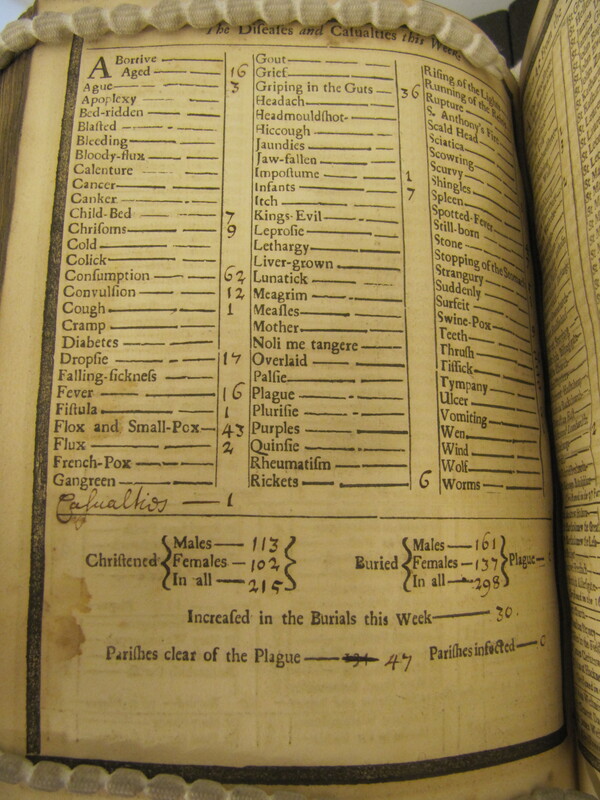 The Diseases and Casualties this Week
ABortive
Aged — 16
Ague — 3
Apoplexy
Bed-ridden
Blasted
Bleeding
Bloody-flux
Calenture
Cancer
Canker
Child-Bed — 7
Chrisoms — 9
Cold
Colick
Consumption — 62
Convulsion — 12
Cough — 1
Cramp
Diabetes
Dropsie — 17
Falling-sickness
Fever — 16
Fistula — 1
Flox and Small-Pox — 43
Flux — 2
French-Pox
Gangreen
Casualties — 1
Gout
Grief
Griping in the Guts — 36
Headach
Headmouldshot
Hiccough
Jaundies
Jaw-fallen
Impostume — 1
Infants — 7
Itch
Kings-Evil
Leprosie
Lethargy
Liver-grown
Lunatick
Meagrim
Measles
Mother
Noli me tangere
Overlaid
Palsie
Plague
Plurisie
Purples
Quinsie
Rheumatism
Rickets — 6
Rising of the Lights
Running of the
Rupture
S. Anthony's Fire
Scald Head
Sciatica
Scowring
Scurvy
Shingles
Spleen
Spotted-Fever
Still-born
Stone
Stopping of the Stomach
Strangury
Suddenly
Surfeit
Swine-Pox
Teeth
Thrush
Tissick
Tympany
Ulcer
Vomiting
Wen
Wind
Wolf
Worms
Christened { Males — 113
Females — 102
In all — 215 }
Buried { Males — 161
Females — 137
In all — 298 } Plague —
Increased in the Burials this Week — 30.
Parishes clear of the Plague — 47 Parishes infected — 0